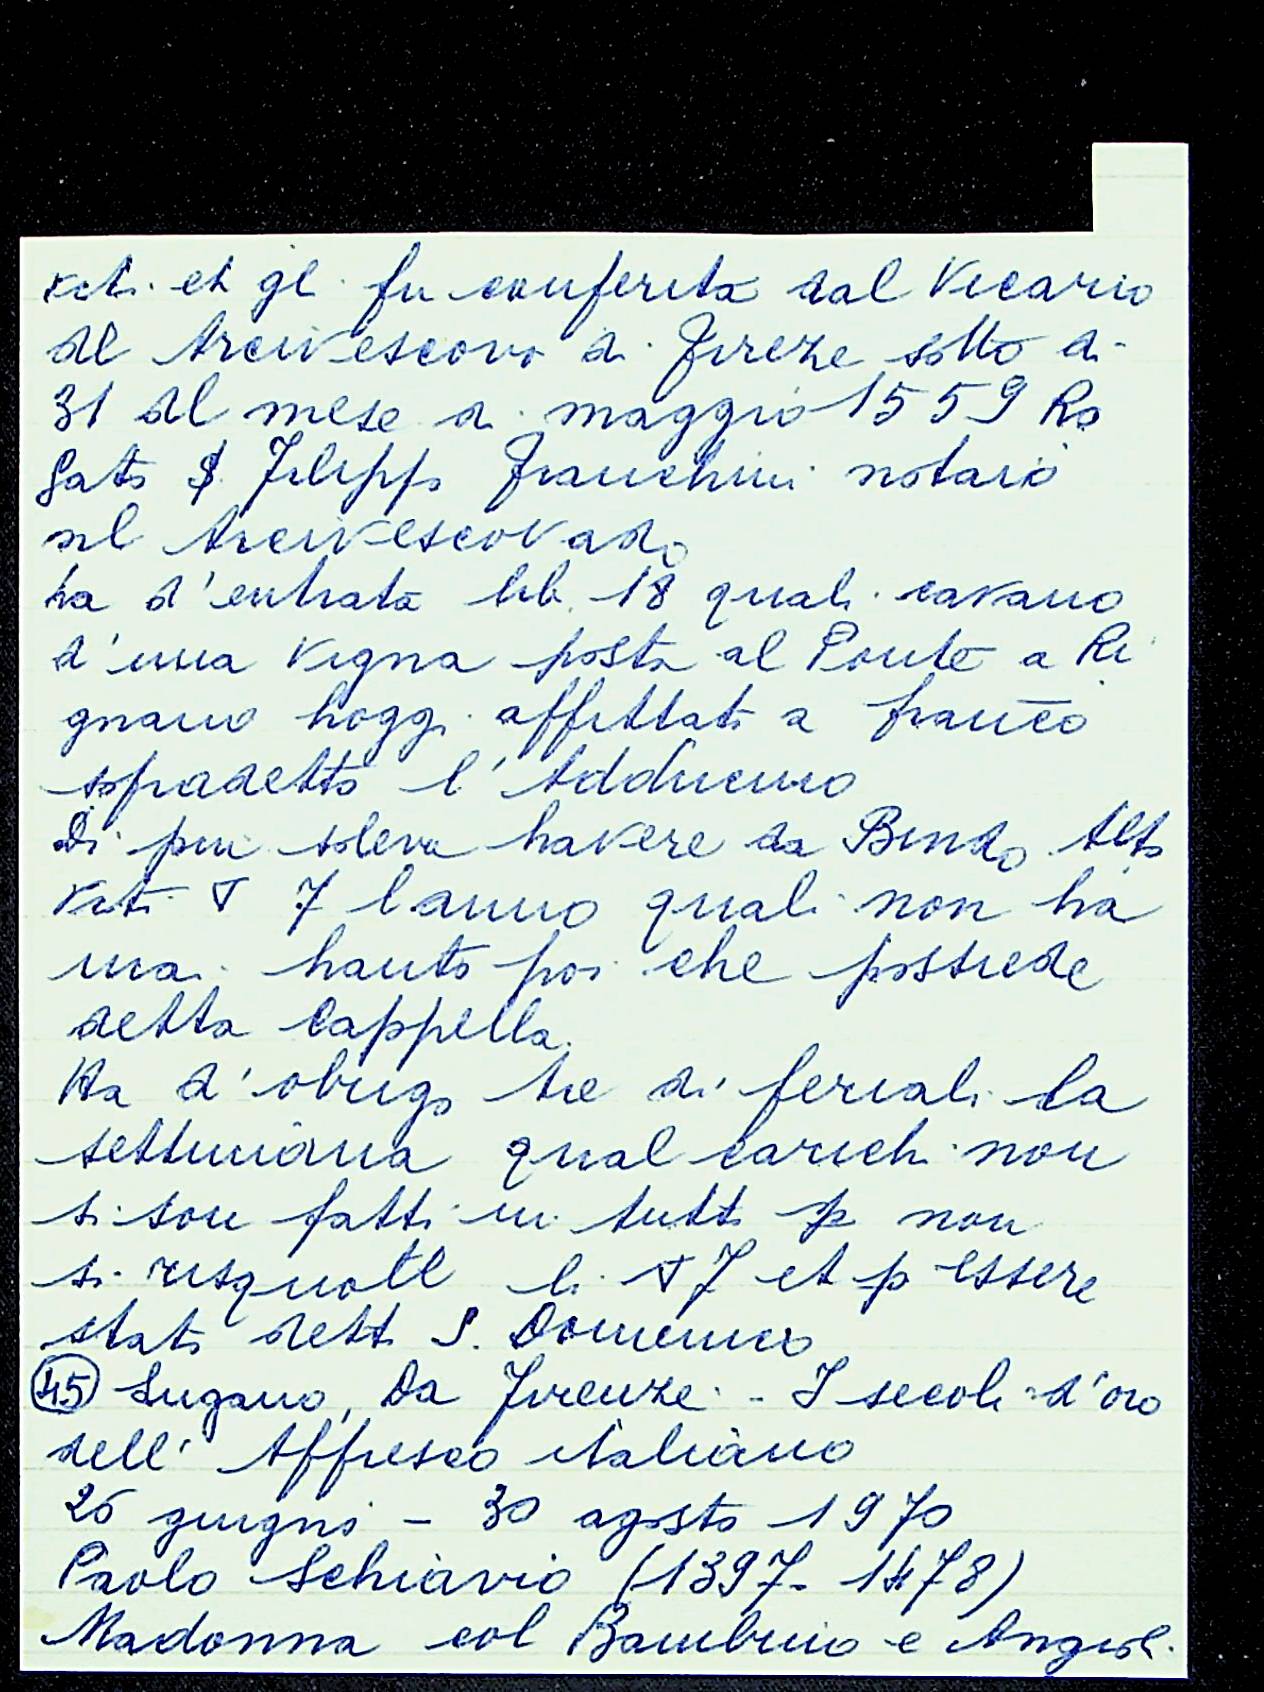 viti. et gli fu conferita dal Vicario
del Arcivescovo di Fireze sotto di
31 del mese di maggio 1559 Ro
gato S. Filippo Franchini notaio
nel Arcivescovado
ha d'entrata lib. 18 quali cavano
d'una vigna posta al Ponte a Ri
gnano hoggi affittati a franco
sopradetto l'
Di piu soleva havere da Bindo Alto
viti ∇ 7 lanno quali non ha
mai hauto poi che possiede
detta Cappella.
Ha d'obrigo tre di feriali la
settimana qual carichi non
si son fatti in tutto p non
si risquote li ∇ 7 et p essere
stato dett S. Domenico
45 Lugano, Da Firenze - I secoli d'oro
dell'Affresco italiano
26 giugno - 30 agosto 1970
Paolo Schiavio (1397-1478)
Madonna col Bambino e Angioli